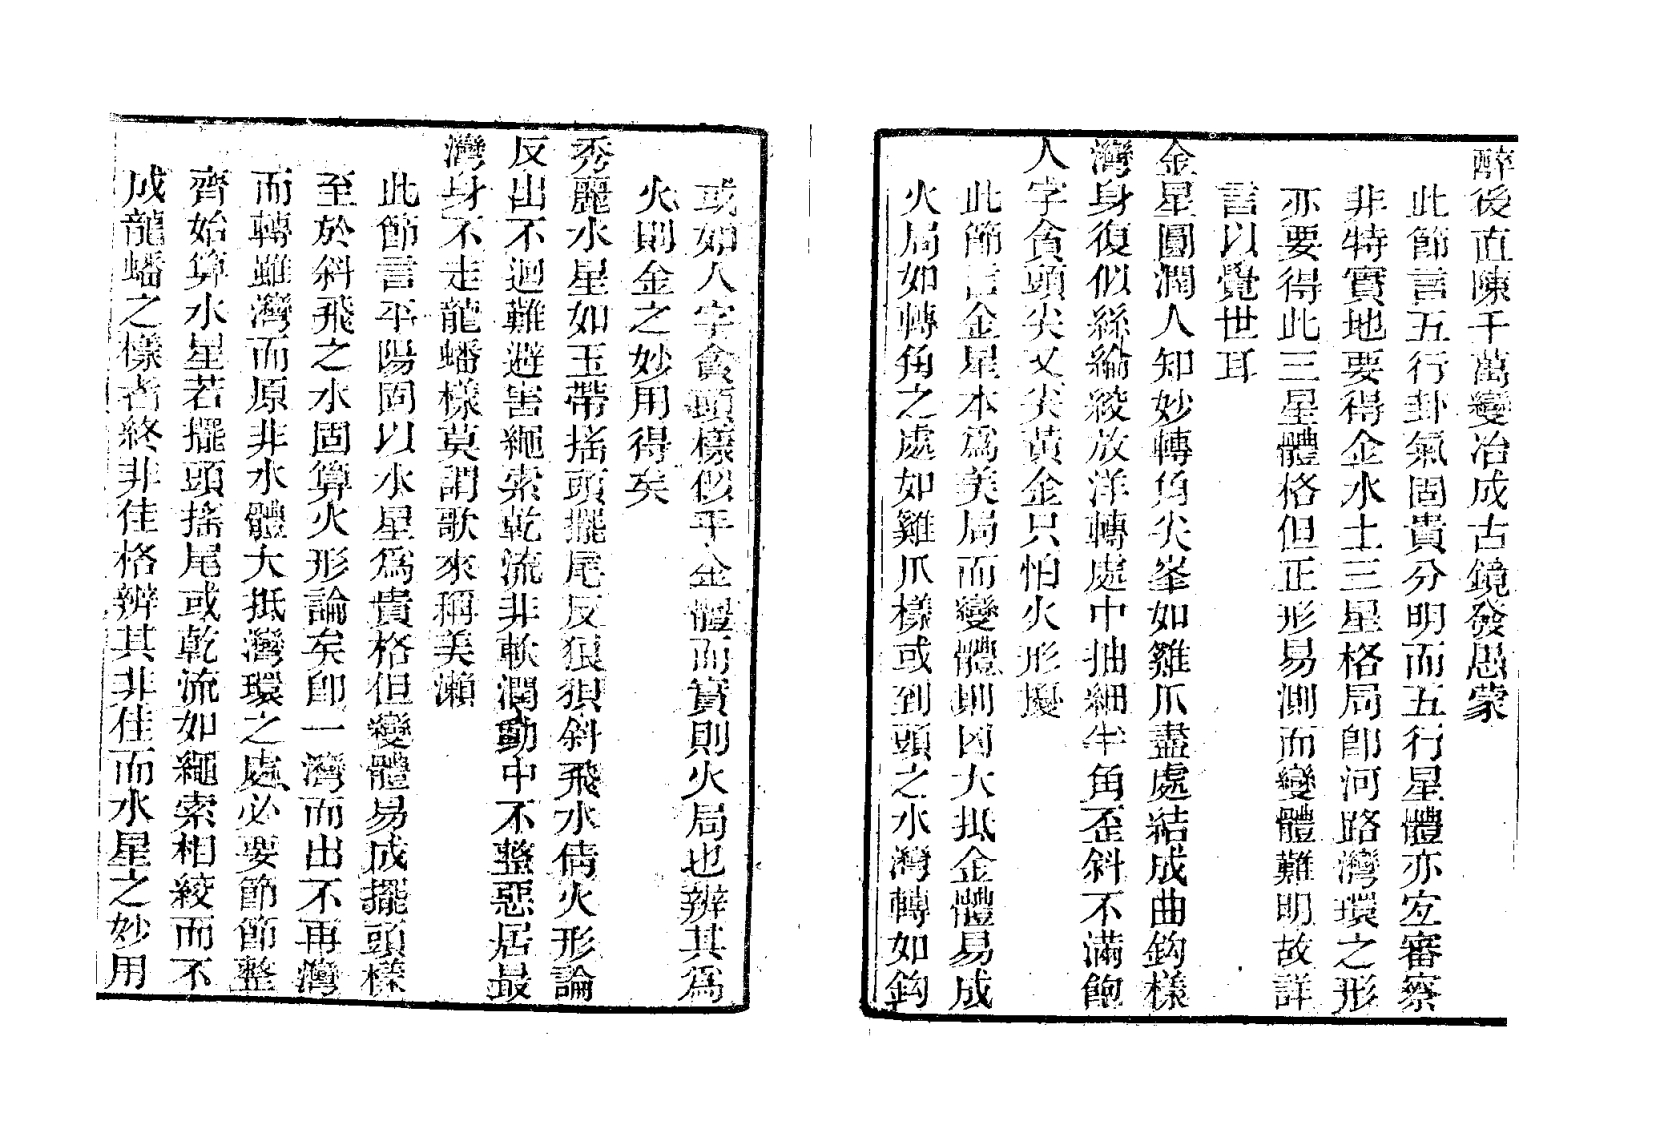 醉後直陳千萬變冶成古鏡發愚蒙
此節言五行卦氣固貴分明而五行星體亦宜審察
非特實地要得金水土三星格局卽河路灣環之形
亦要得此三星體格但正形易測而變體難明故詳
言以覺世耳
金星圓潤人知妙轉角尖尖峯如雞爪盡處結成曲鈎樣
灣身復似絲綸綾放洋轉處中抽細牛角歪斜不滿飽
人字貪頭尖又尖黃金只怕火形擾
此節言金星本爲美局而變體則凶大抵金體易成
火局如轉角之處如雞爪樣或到頭之水灣轉如鈎
或如人字貪頭樣似乎金體而實則火局也辨其爲
火則金之妙用得矣
秀麗水星如玉帶搖頭擺尾反狼狽斜飛水倩火形論
反出不迴難避害繩索乾流非軟潤動中不整惡居最
灣身不走龍蟠樣莫謂歌來稱美瀨
此節言平陽固以水星爲貴格但變體易成擺頭樣
至於斜飛之水固算火形論矣卽一灣而出不再灣
而轉雖灣而原非水體大抵灣環之處必要節節整
齊始算水星若擺頭搖尾或乾流如繩索相絞而不
成龍蟠之樣者終非佳格辨其非佳而水星之妙用